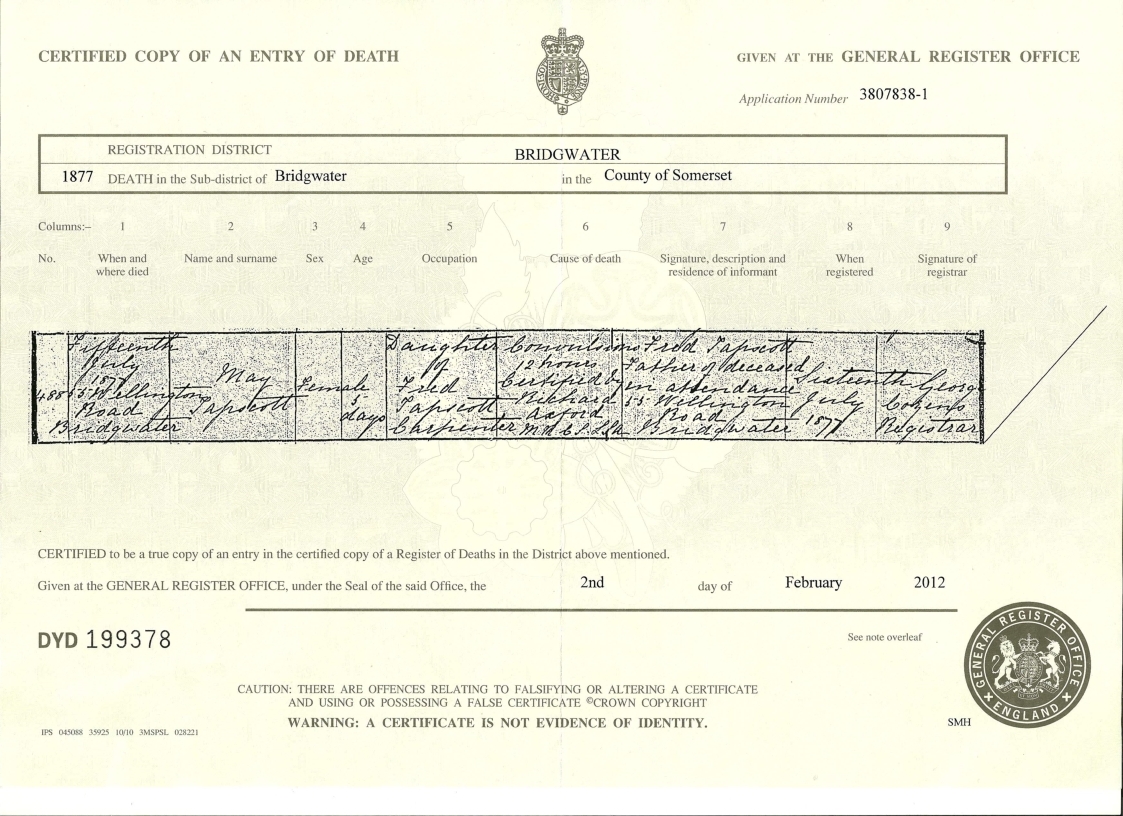 CERTIFIED COPY OF AN ENTRY OF DEATH
GIVEN AT THE GENERAL REGISTER OFFICE
Application Number 3807838-1
REGISTRATION DISTRICT BRIDGWATER
1877 DEATH in the Sub-district of Bridgwater in the County of Somerset
Columns:– 1 2 3 4 5 6 7 8 9
No. When and where died Name and surname Sex Age Occupation Cause of death Signature, description and residence of informant When registered Signature of registrar
488
Fifteenth
July
1877
55 Wellington
Road
Bridgwater
May
Tapscott
Female
5
days
Daughter
of
Fred
Tapscott
Carpenter
Convulsions
12 hours
Certified by
Richard
Axford
Fred Tapscott
Father of deceased
in attendance
55 Wellington
Road
Bridgwater
Sixteenth
July
1877
George
Cozens
Registrar
CERTIFIED to be a true copy of an entry in the certified copy of a Register of Deaths in the District above mentioned.
Given at the GENERAL REGISTER OFFICE, under the Seal of the said Office, the 2nd day of February 2012
DYD 199378
See note overleaf
CAUTION: THERE ARE OFFENCES RELATING TO FALSIFYING OR ALTERING A CERTIFICATE
AND USING OR POSSESSING A FALSE CERTIFICATE ©CROWN COPYRIGHT
WARNING: A CERTIFICATE IS NOT EVIDENCE OF IDENTITY.
GENERAL REGISTER OFFICE
ENGLAND
SMH
IPS 045088 35925 10/10 3MSPSL 028221